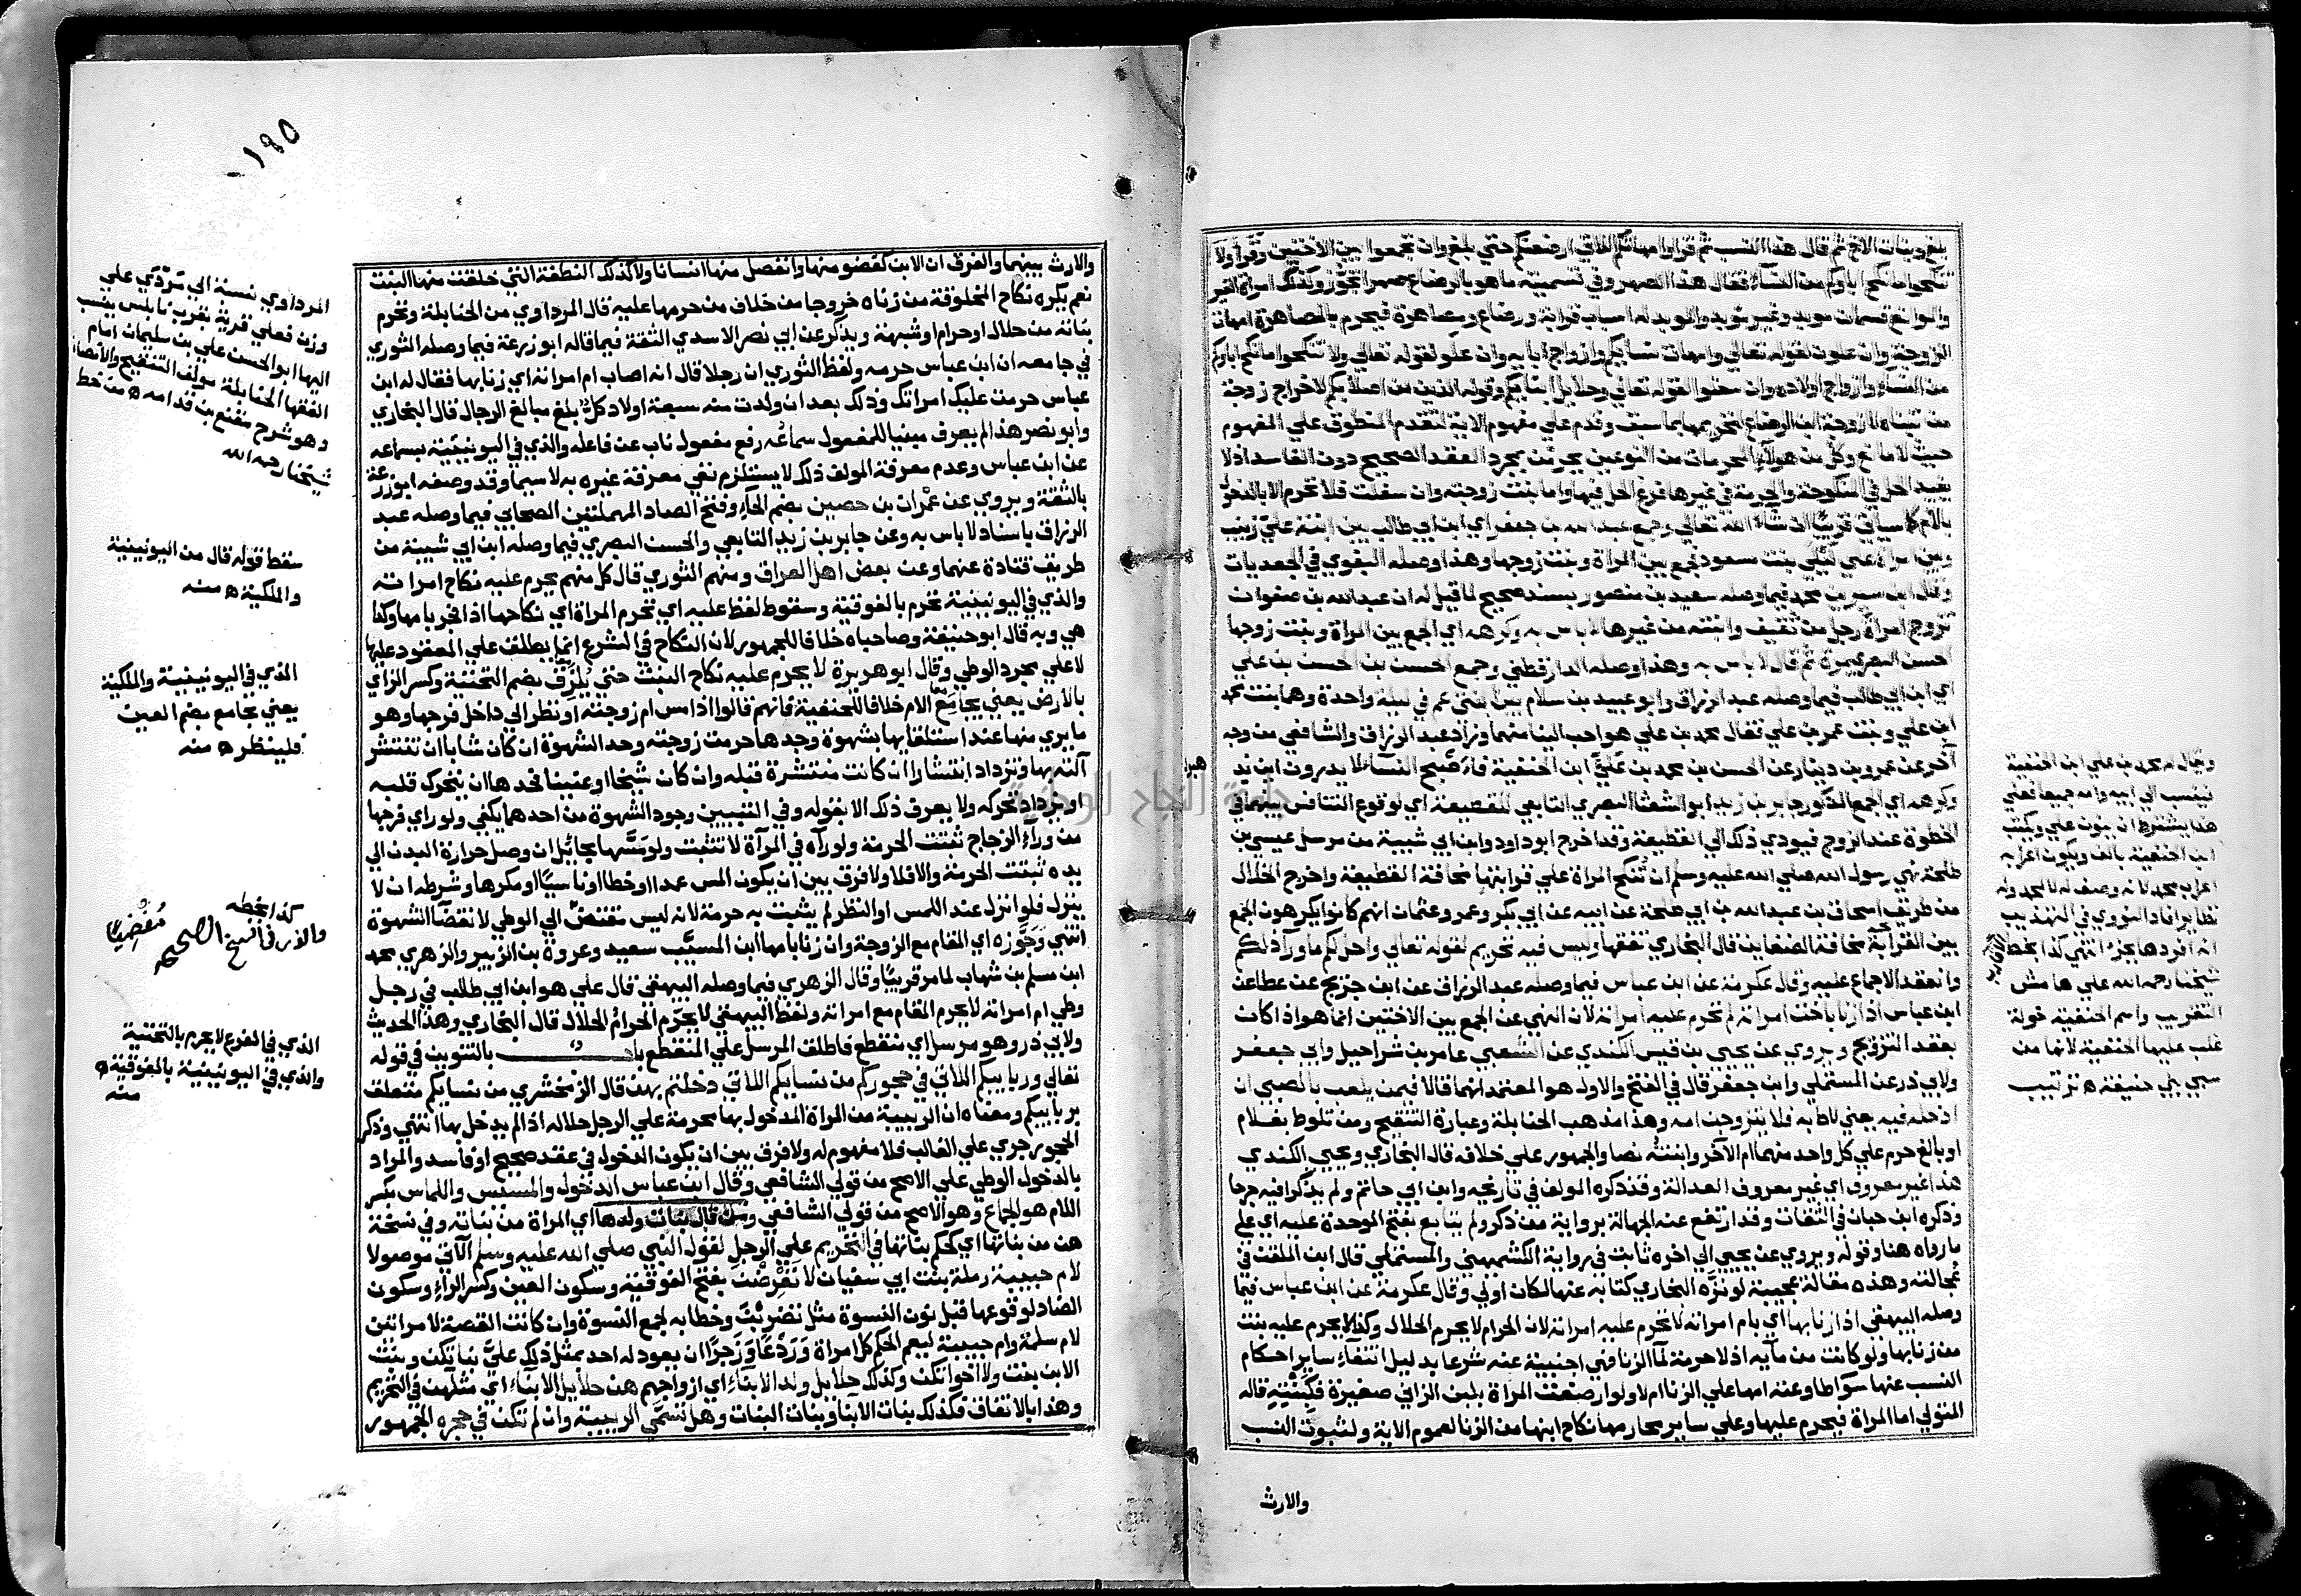 بلغ وبنات الاخ ثم قال هذا النسب ثم قرا وامهاتكم اللاتي ارضعنكم حتي بلغ وان تجمعوا بين الاختين وقرا ولا
تنكحوا ما نكح اباوكم من النساء فقال هذا الصهر وفي تسميته ما هو بالرضاع صهرا تجوز وكذلك امراة الغير
والموانع قسمان موبد وغير موبد والموبد له اسباب قرابة ورضاع ومصاهرة فيحرم بالمصاهرة امهات
الزوجة وان علون لقوله تعالي وامهات نسايكم وازواج ابايه وان علوا لقوله تعالي ولا تنكحوا ما نكح اباوكم
من النساء وازواج اولاده وان سفلوا لقوله تعالي وحلايل ابنايكم وقوله الذين من اصلابكم لاخراج زوجة
من تبناه لا زوجة ابن الرضاع لتحريمها بما سبق وقدم علي مفهوم الاية لتقدم المنطوق علي المفهوم
حيث لا مانع وكل من هولاء المحرمات من النوعين يحرمن بمجرد العقد الصحيح دون الفاسد اذ لا
يفيد الحل في المنكوحة والحرمة في غيرها فرع الحل فيها واما بنت زوجته وان سفلت فلا تحرم الا بالدخول
بالام كما سياتي قريبا ان شاء الله تعالي وجمع عبد الله بن جعفر اي ابن ابي طالب بين ابنة علي زينب
وبين امراة علي ليلي بنت مسعود فجمع بين المراة وبنت زوجها وهذا وصله البغوي في الجعديات
وقال ابن سيرين محمد فيما وصله سعيد بن منصور بسند صحيح لما قيل له ان عبد الله بن صفوان
تزوج امراة رجل من ثقيف وابنته من غيرها لا باس به وكرهه اي الجمع بين المراة وبنت زوجها
الحسن البصري مرة ثم قال لا باس به وهذا وصله الدارقطني وجمع الحسن بن الحسن بن علي
اي ابن ابي طالب فيما وصله عبد الرزاق وابو عبيد بن سلام بين بنتي عم في ليلة واحدة وهما بنت محمد
ابن علي وبنت عمر بن علي فقال محمد بن علي هو احب الينا منهما وزاد عبد الرزاق والشافعي من وجه
آخر عن عمرو بن دينار عن الحسن بن محمد بن علي ابن الحنفية فاصبح النساء لا يدرون اين يذ
هبن
وكرهه اي الجمع المذكور جابر بن زيد ابو الشعثا البصري التابعي للقطيعة اي لوقوع التنافس بينهما في
الحظوة عند الزوج فيودي ذلك الي القطيعة وقد اخرج ابو داود وابن ابي شيبة من مرسل عيسي بن
طلحة نهي رسول الله صلي الله عليه وسلم ان تنكح المراة علي قرابتها مخافة القطيعة واخرج الخلال
من طريق اسحاق بن عبد الله بن ابي طلحة عن ابيه عن ابي بكر وعمر وعثمان انهم كانوا يكرهون الجمع
بين القرابة مخافة الضغاين قال البخاري تفقها وليس فيه تحريم لقوله تعالي واحل لكم ما وراء ذلكم
وانعقد الاجماع عليه وقال عكرمة عن ابن عباس فيما وصله عبد الرزاق عن ابن جريج عن عطا عن
ابن عباس اذا زنا باخت امراته لم تحرم عليه امراته لان النهي عن الجمع بين الاختين انما هو اذا كان
بعقد التزويج ويروي عن يحيي بن قيس الكندي عن الشعبي عامر بن شراحيل وابي جعفر
ولابي ذر عن المستملي وابن جعفر قال في الفتح والاول هو المعتمد انهما قالا فيمن يلعب بالصبي ان
ادخله فيه يعني لاط به فلا يتزوجن امه وهذا مذهب الحنابلة وعبارة التنقيح ومن تلوط بغلام
او بالغ حرم علي كل واحد منهما ام الآخر وابنته نصا والجمهور علي خلافه قال البخاري ويحيي الكندي
هذا غير معروف اي غير معروف العدالة وقد ذكره المولف في تاريخه وابن ابي حاتم ولم يذكرا فيه جرحا
وذكره ابن حبان في الثقات وقد ارتفع عنه الجهالة برواية من ذكر ولم يتابع بفتح الموحدة عليه اي علي
ما رواه هنا وقوله ويروي عن يحيي الي اخره ثابت في رواية الكشميهني والمستملي قال ابن الملقن في
عجالته وهذه مقالة عجيبة لو نزه البخاري كتابه عنها لكان اولي وقال عكرمة عن ابن عباس فيما
وصله البيهقي اذا زنا بها اي بام امراته لا تحرم عليه امراته لان الحرام لا يحرم الحلال وكذا لا يحرم عليه بنت
من زنا بها ولو كانت من مآيه اذ لا حرمة لماء الزنا فهي اجنبية عنه شرعا بدليل انتفاء ساير احكام
النسب عنها سواء طاوعته امها علي الزنا ام لا ولو ارضعت المراة بلبن الزاني صغيرة فكبنته قاله
المتولي اما المراة فيحرم عليها وعلي ساير محارمها نكاح ابنها من الزنا لعموم الاية ولثبوت النسب
والارث
ويقال له محمد بن علي ابن الحنفية
فينسب الي ابيه وامه جميعا فعلي
هذا يشترط ان ينون علي ويكتب
ابن الحنفية بالف ويكون اعرابه
اعراب محمد لانه وصف له لا لعلي وله
نظاير افاد النووي في التهذيب
انه افردها بجزء انتهي كذا بخط
شيخنا رحمه الله علي هامش
التقريب واسم الحنفية خولة
غلب عليها الحنفية لانها من
سبي بني حنيفة ه ترتيب
١٩٥
والارث بينهما والفرق ان الابن كعضو منها وانفصل منها انسانا ولا كذلك النطفة التي خلقت منها البنت
نعم يكره نكاح المخلوقة من زناه خروجا من خلاف من حرمها عليه قال المرداوي من الحنابلة وتحرم
بناته من حلال او حرام او شبهة ويذكر عن ابي نصر الاسدي الثقة فيما قاله ابو زرعة فيما وصله الثوري
في جامعه ان ابن عباس حرمه ولفظ الثوري ان رجلا قال انه اصاب ام امراته اي زنا بها فقال له ابن
عباس حرمت عليك امراتك وذلك بعد ان ولدت منه سبعة اولاد كل بلغ مبالغ الرجال قال البخاري
وابو نصر هذا لم يعرف مبنيا للمفعول سماعه رفع مفعول ناب عن فاعله والذي في اليونينية بسماعه
عن ابن عباس وعدم معرفة المولف ذلك لا يستلزم نفي معرفة غيره به لا سيما وقد وصفه ابو زرعة
بالثقة ويروي عن عمران بن حصين بضم الحاء وفتح الصاد المهملتين الصحابي فيما وصله عبد
الرزاق باسناد لا باس به وعن جابر بن زيد التابعي والحسن البصري فيما وصله ابن ابي شيبة من
طريق قتادة عنهما وعن بعض اهل العراق ومنهم الثوري قال كل منهم يحرم عليه نكاح امراته
والذي في اليونينية تحرم بالفوقية وسقوط لفظ عليه اي تحرم المراة اي نكاحها اذا فجر بامها وكذا
هي وبه قال ابو حنيفة وصاحباه خلافا للجمهور لان النكاح في الشرع انما يطلق علي المعقود عليها
لا علي مجرد الوطي وقال ابو هريرة لا يحرم عليه نكاح البنت حتي يلزق بضم التحتية وكسر الزاي
بالارض يعني يجامع الام خلافا للحنفية فانهم قالوا اذا مس ام زوجته او نظر الي داخل فرجها وهو
ما يري منها عند استلقايها بشهوة وجدها حرمت زوجته وحد الشهوة ان كان شابا ان تنتشر
آلته بها وتزداد انتشارا ان كانت منتشرة قبله وان كان شيخا او عنينا فحدها ان يتحرك قلبه
او يزداد تحركه ولا يعرف ذلك الا بقوله وفي التبيين وجود الشهوة من احدهما يكفي ولو راي فرجها
من وراء الزجاج ثبتت الحرمة ولو رآه في المرآة لا تثبت ولو مسها بحائل ان وصل حرارة البدن الي
يده ثبتت الحرمة والا فلا ولا فرق بين ان يكون المس عمدا او خطا او ناسيا او مكرها وشرطه ان لا
ينزل فلو انزل عند اللمس او النظر لم يثبت به حرمة لانه ليس مفض الي الوطي لانقضاء الشهوة
انتهي وجوزه اي المقام مع الزوجة وان زنا بامها ابن المسيب سعيد وعروة بن الزبير والزهري محمد
ابن مسلم بن شهاب لما مر قريبا وقال الزهري فيما وصله البيهقي قال علي هو ابن ابي طالب في رجل
وطي ام امراته لا يحرم المقام مع امراته ولفظ البيهقي لا يحرم الحرام الحلال قال البخاري وهذا الحديث
ولابي ذر وهو مرسل اي منقطع فاطلق المرسل علي المنقطع باب بالتنوين في قوله
تعالي وربايبكم اللاتي في حجوركم من نسايكم اللاتي دخلتم بهن قال الزمخشري من نسايكم متعلق
بربايبكم ومعناه ان الربيبة من المراة المدخول بها محرمة علي الرجل حلال له اذا لم يدخل بها انتهي وذكر
الحجور جري علي الغالب فلا مفهوم له ولا فرق بين ان يكون الدخول في عقد صحيح او فاسد والمراد
بالدخول الوطي علي الاصح من قولي الشافعي وقال ابن عباس الدخول والمسيس واللماس بكسر
اللام هو الجماع وهو الاصح من قولي الشافعي ومن قال بنات ولدها اي المراة من بناته وفي نسخة
هن من بناتها اي كحكم بناتها في التحريم علي الرجل لقول النبي صلي الله عليه وسلم الآتي موصولا
لام حبيبة رملة بنت ابي سفيان لا تعرضن بفتح الفوقية وسكون العين وكسر الراء وسكون
الضاد لوقوعها قبل نون النسوة مثل تضربن وخطابه لجمع النسوة وان كانت القصة لامراتين
لام سلمة وام حبيبة ليعم الحكم كل امراة وردعا وزجرا ان يعود له احد بمثل ذلك علي بناتكن وبنت
الابن بنت ولا اخواتكن وكذلك حلايل ولد الابناء اي ازواجهم هن حلايل الابناء اي مثلهن في التحريم
وهذا بالاتفاق فكذلك بنات الابنا وبنات البنات وهل تسمي الربيبة وان لم تكن في حجره الجمهور
المرداوي نسبة الي مردي علي
وزن فعلي قرية بقرب نابلس ينسب
اليها ابو الحسن علي بن سليمان امام
الفقها الحنابلة مولف التنقيح والانصاف
وهو شرح مقنع بن قدامه ه من خط
شيخنا رحمه الله
سقط قوله قال من اليونينية
والملكية ه منه
الذي في اليونينية والملكية
يعني تجامع بضم العين
فلينظر ه منه
كذا بخطه
والذي في النسخ الصحيحة
مفضيا
الذي في الفرع لا يحرم بالتحتية
والذي في اليونينية بالفوقية ه
منه
جامعة النجاح الوطنية